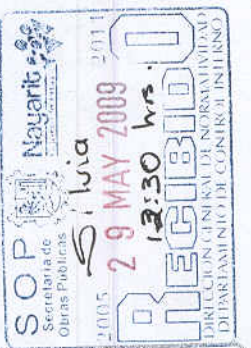 SOP
Secretaría de
Obras Públicas
Nayarit
2005 2011
Silvia
29 MAY 2009
12:30 hrs.
RECIBIDO
DIRECCION GENERAL DE NORMATIVIDAD
DEPARTAMENTO DE CONTROL INTERNO